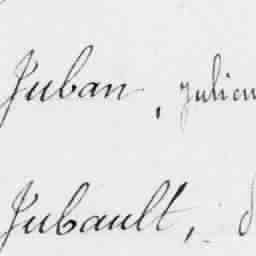 Juban, Julien
Jubault,